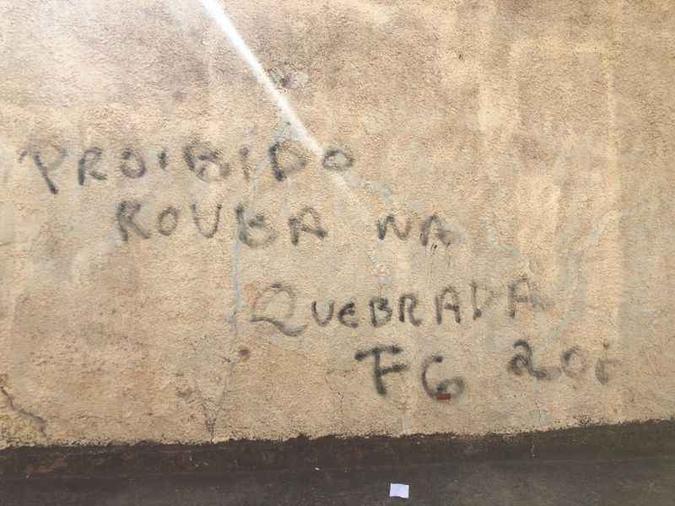 PROIBIDO
ROUBA NA
QUEBRADA
FG